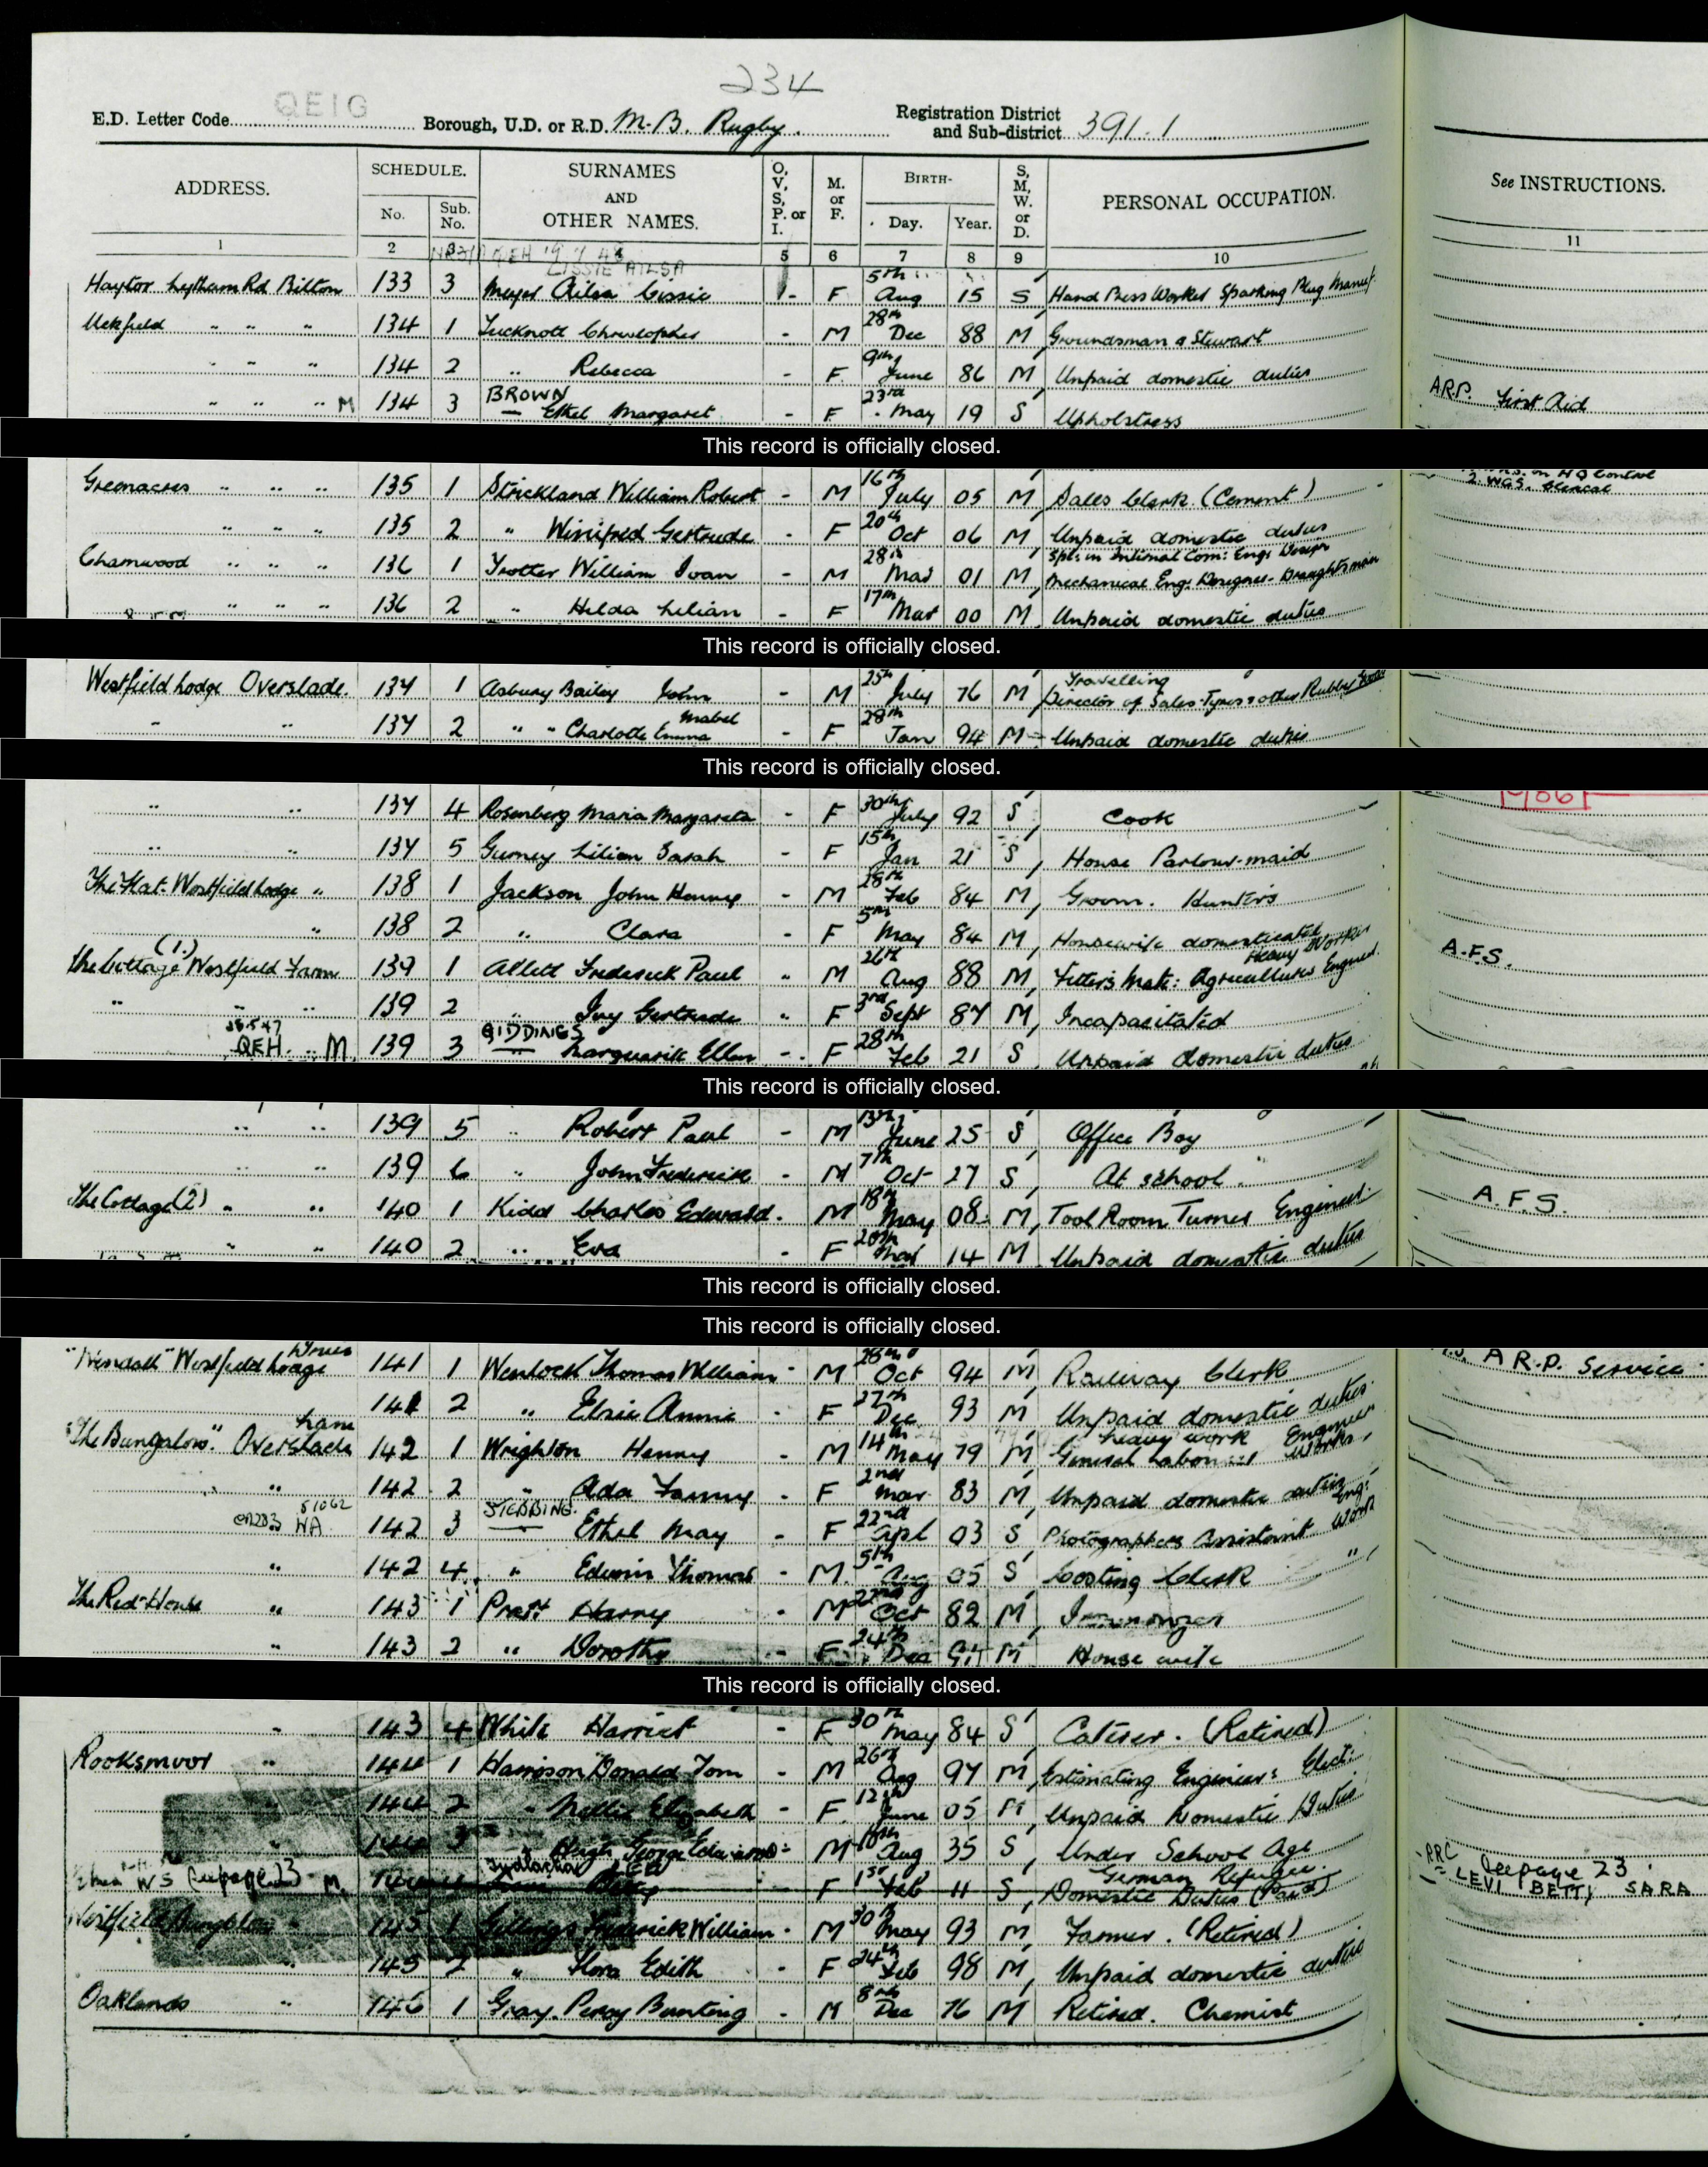 234
E.D. Letter Code QEIG Borough, U.D. or R.D. M.B. Rugby. Registration District and Sub-district 391.1
ADDRESS. SCHEDULE. No. Sub. No. SURNAMES AND OTHER NAMES. O, V, S, P. or I. M. or F. BIRTH- Day. Year. S, M, W. or D. PERSONAL OCCUPATION. See INSTRUCTIONS.
1 2 3 5 6 7 8 9 10 11
LISSIE AILSA
Haytor Lytham Rd Bilton 133 3 Meyer Ailsa Cissie - F 5th Aug 15 S Hand Press Worker Sparking Plug Manuf.
" " " 134 1 Tucknott Christopher - M 28th Dec 88 M Groundsman & Stewart
" " " 134 2 " Rebecca - F 9th June 86 M Unpaid domestic duties
" " " M 134 3 BROWN — Ethel Margaret - F 23rd May 19 S Upholstress A.R.P. First Aid
This record is officially closed.
Greenacres " " " 135 1 Strickland William Robert - M 16th July 05 M Sales Clerk (Cement) on HQ Control
2. WGS. Clerical
" " " 135 2 " Winifred Gertrude - F 20th Oct 06 M Unpaid domestic duties
Charnwood " " " 136 1 Trotter William Ivan - M 28th Mar 01 M Mechanical Eng: Designer-Draughtsman
" " " 136 2 " Hilda Lilian - F 17th Mar 00 M Unpaid domestic duties
This record is officially closed.
Westfield Lodge Overslade. 137 1 Asbury Bailey John - M 25th July 76 M Travelling Director of Sales-Tyres & other Rubber Goods
" " 137 2 " " Charlotte Emma Mabel - F 28th Jan 94 M - Unpaid domestic duties
This record is officially closed.
" " 137 4 Rosenberg Maria Margareta - F 30th July 92 S Cook
" " 137 5 Gurney Lilian Sarah - F 15th Jan 21 S House Parlour-maid
The Flat. Westfield Lodge " 138 1 Jackson John Henry - M 28th Feb 84 M Groom. Hunters
" 138 2 " Clara - F 5th May 84 M Housewife domesticated
The Cottage (1.) Westfield Farm 139 1 Allett Frederick Paul " M 26th Aug 88 M Fitters Mate: Agricultural Engineer. Heavy Worker A.F.S.
" " " 139 2 " Ivy Gertrude " F 3rd Sept 87 M Incapacitated
QEH " M. 139 3 GIDDINGS — Marguerite Ellen - F 28th Feb 21 S Unpaid domestic duties
This record is officially closed.
" " 139 5 " Robert Paul - M 13th June 25 S Office Boy
" " 139 6 " John Frederick - M 7th Oct 27 S At school
The Cottage (2) " " 140 1 Kidd Charles Edward. M 18th May 08 M Tool Room Turner Engineer. A.F.S.
" " 140 2 " Eva - F 20th Mar 14 M Unpaid domestic duties
This record is officially closed.
This record is officially closed.
Westfield Lodge 141 1 Wenlock Thomas William - M 28th Oct 94 M Railway Clerk A.R.P. Service
141 2 " Elsie Annie - F 27th Dec 93 M Unpaid domestic duties
"The Bungalow". Overslade Lane 142 1 Wrighton Henry - M 14th May 79 M General Labourer heavy work Engineer Works
" 142 2 " Ada Fanny - F 2nd Mar 83 M Unpaid domestic duties
WA 142 3 STEBBING. — Ethel May - F 22nd Apl 03 S Photographers Assistant Eng: Work
" 142 4 " Edwin Thomas - M 5th Aug 05 S Costing Clerk "
The Red-House " 143 1 Pratt Harry - M 22nd Oct 82 M Ironmonger
" 143 2 " Dorothy - F 24th Dec M House wife
This record is officially closed.
" 143 4 White Harriet - F 30th May 84 S Caterer. (Retired)
Rooksmoor " 144 1 Harrison Donald Tom - M 26th Aug 97 M Estimating Engineer: Elect:
144 2 " Nellie Elizabeth - F 12th June 05 M Unpaid Domestic Duties
144 3 " Hugh George Edward - M 18th Aug 35 S Under School Age
WS (see page 23 M. 144 4 F 1st Feb 11 S German Refugee. Domestic Duties (Paid) See page 23
LEVI BETTY SARA
Westfield Bungalow 145 1 Frederick William - M 30th May 93 M Farmer. (Retired)
" 145 2 " Flora Edith - F 24th Feb 98 M Unpaid domestic duties
Oaklands " 146 1 Gray. Percy Bunting - M 8th Dec 76 M Retired. Chemist